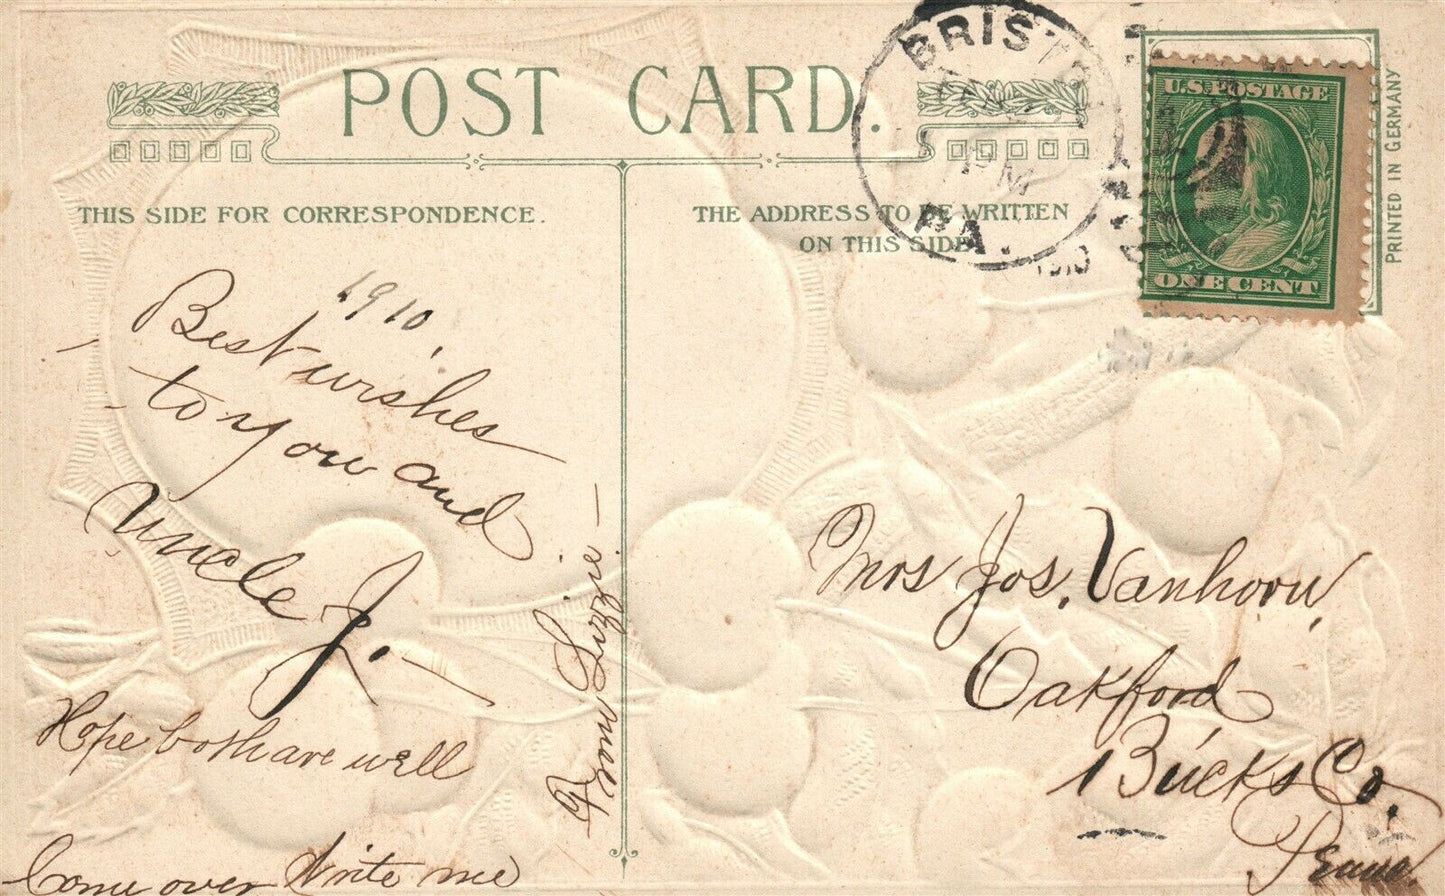 POST CARD.
THIS SIDE FOR CORRESPONDENCE.
THE ADDRESS TO BE WRITTEN
ON THIS SIDE
BRISTOL
PM
PA.
1910
U.S. POSTAGE
ONE CENT
PRINTED IN GERMANY
1910
Best wishes
to you and
Uncle J.
Hope both are well
Come over Write me
From Lizzie
Mrs Jos. Vanhorn,
Oakford
Bucks Co.
Penna